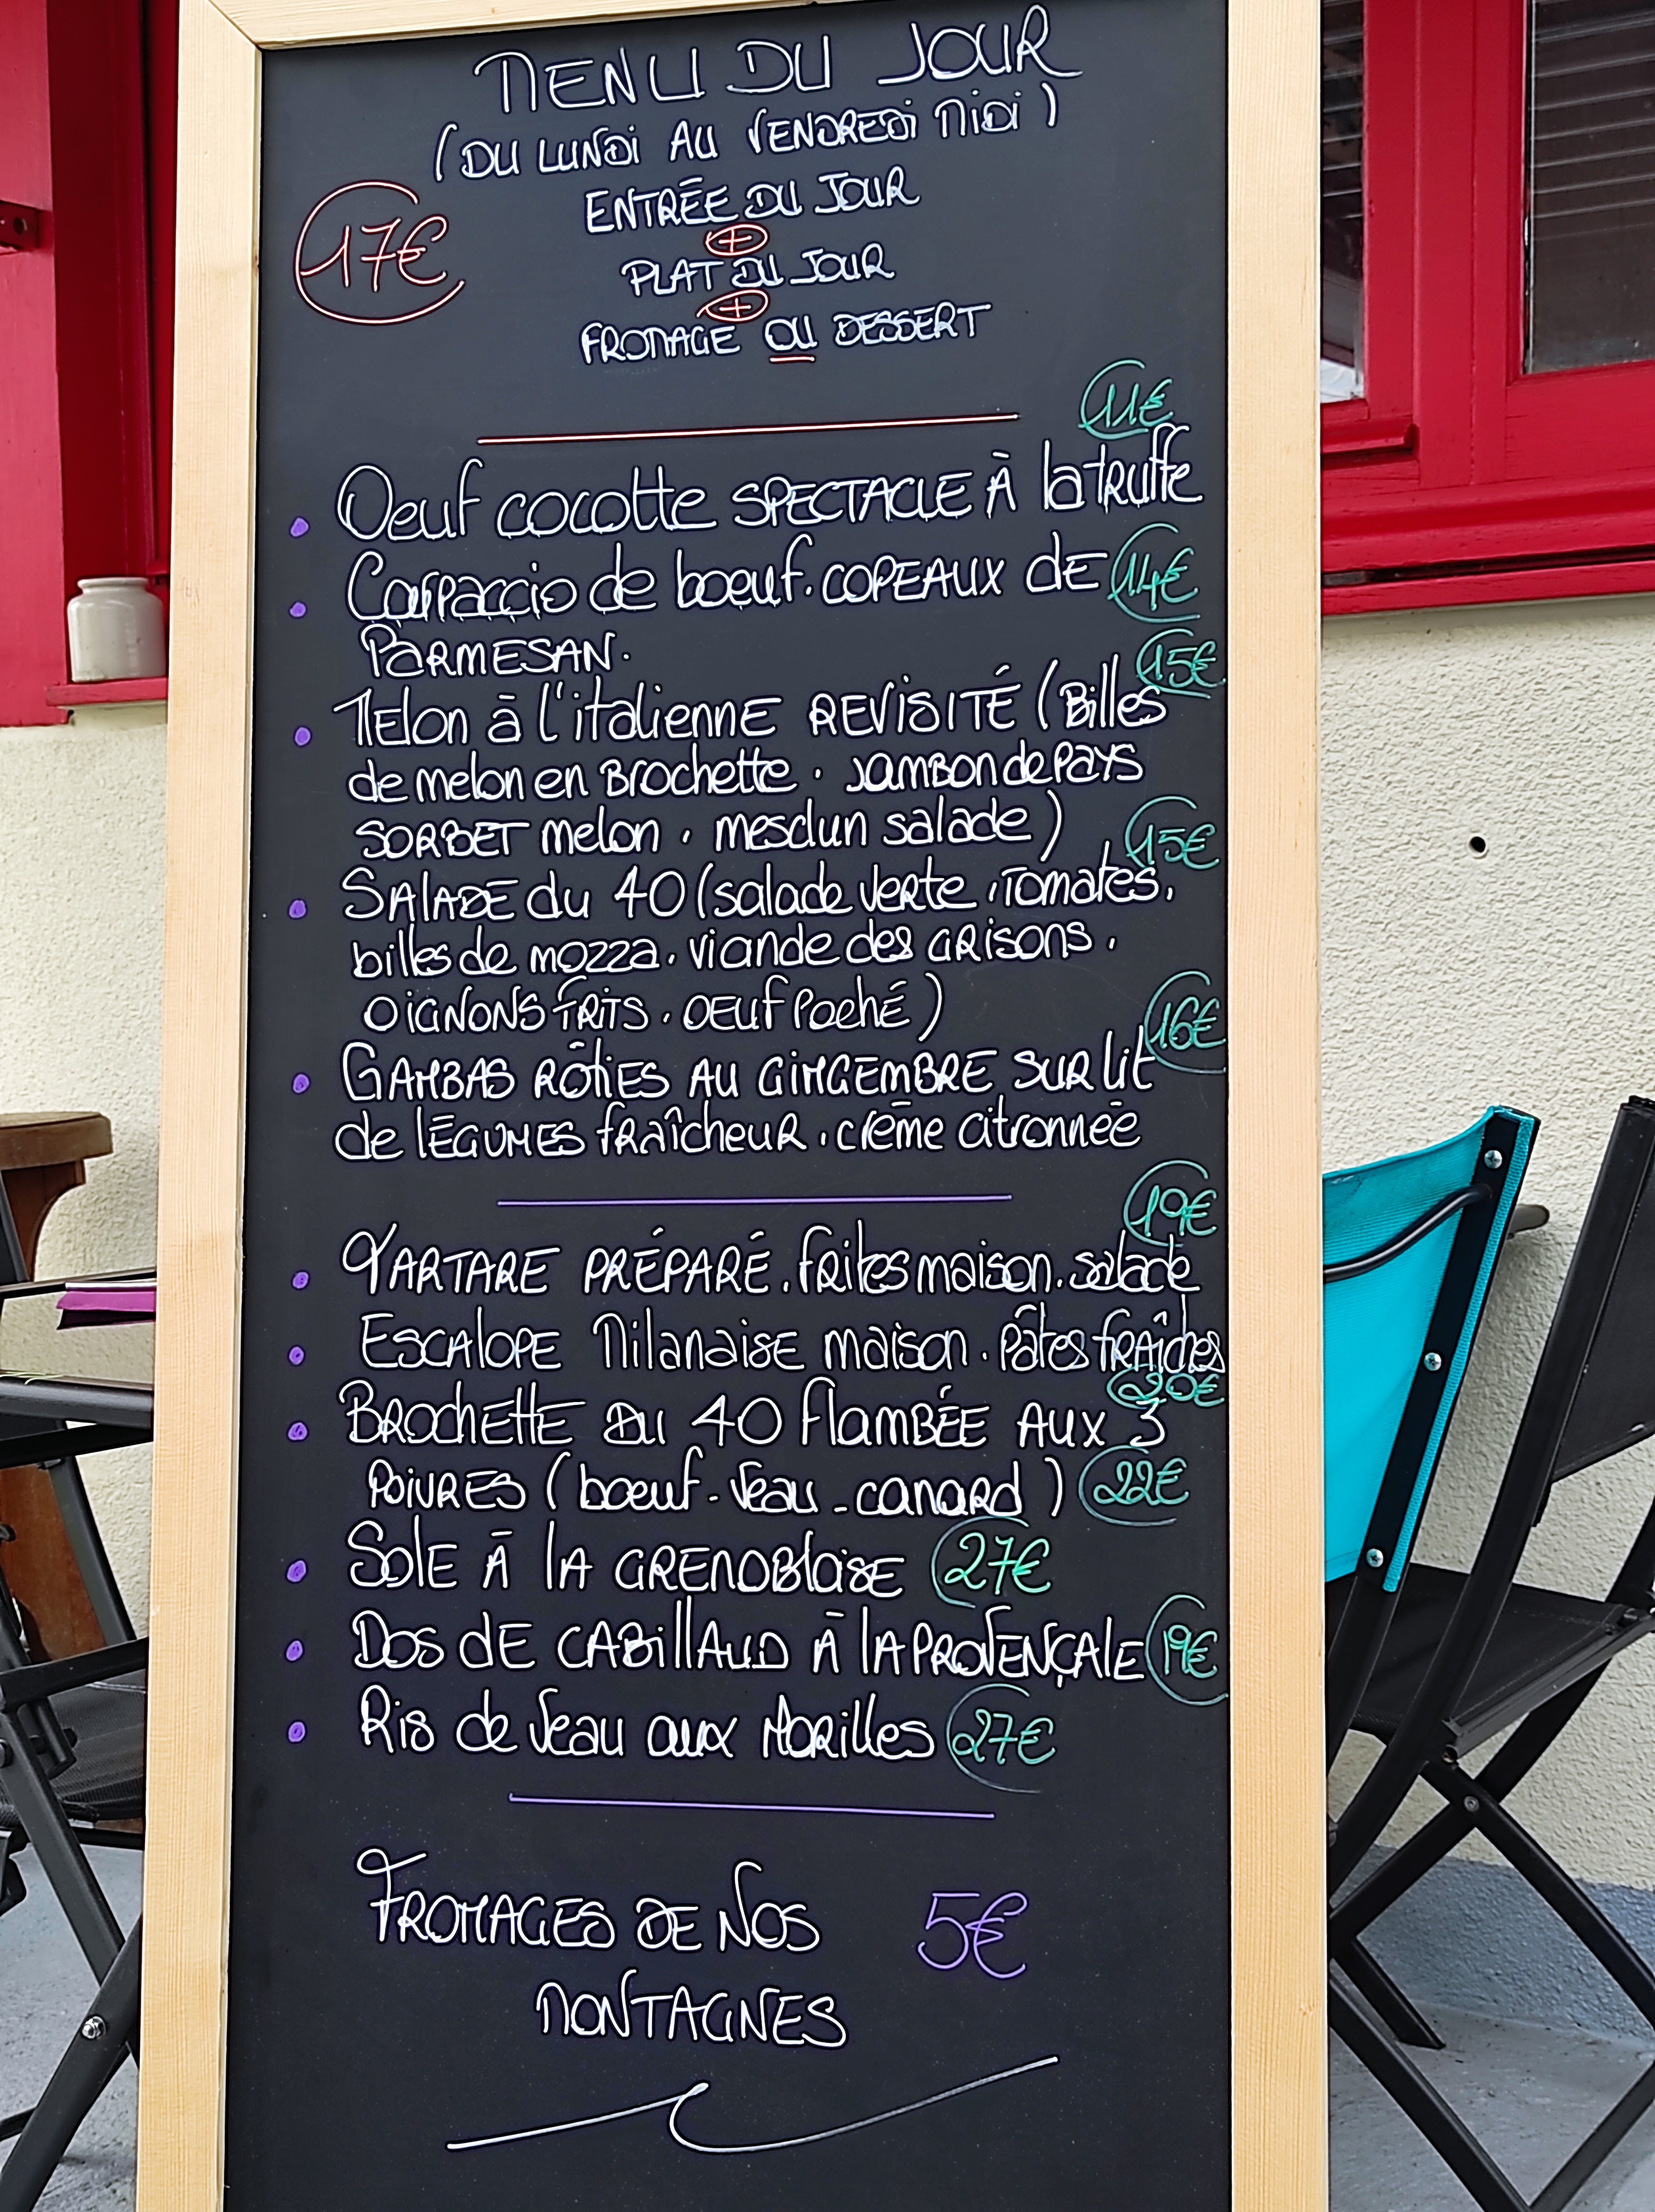 MENU DU JOUR
(DU LUNDI AU VENDREDI MIDI)
ENTRÉE DU JOUR
+
17€
PLAT DU JOUR
+
FROMAGE OU DESSERT
11€
Oeuf cocotte SPECTACLE À la truffe
Carpaccio de boeuf. COPEAUX dE 14€
PARMESAN.
15€
Melon à l'italienne REVISITÉ (Billes
de melon en Brochette . Jambon de Pays
SORBET melon . mesclun salade)
15€
SALADE du 40 (salade verte . Tomates.
billes de mozza . viande des GRISONS .
OIGNONS FRITS . OEUF Poché)
16€
GAMBAS RÔTIES AU GIMGEMBRE SUR lit
de LÉGUMES fraîcheur . crème citronnée
19€
TARTARE PRÉPARÉ . frites maison . salade
ESCALOPE Milanaise maison . Pâtes fraîches
20€
BROCHETTE DU 40 FlamBÉE AUX 3
POIVRES (boeuf - Veau - canard) 22€
SOLE À LA GRENOBLOISE 27€
DOS dE CABILLAUD À LA PROVENÇALE 19€
Ris de Veau aux Morilles 27€
FROMAGES DE NOS 5€
MONTAGNES